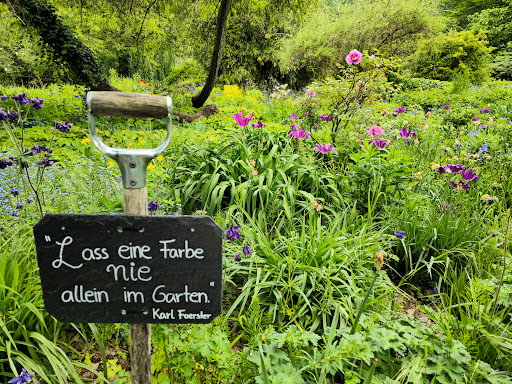 "Lass eine Farbe
nie
allein im Garten."
Karl Foerster